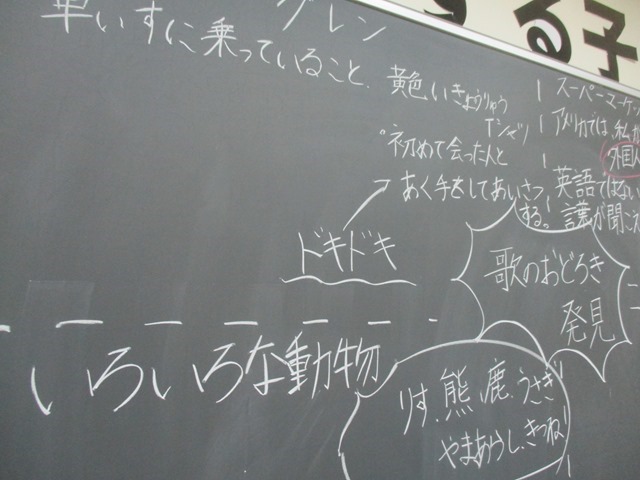 する子
車いすに乗っていること、
グレン
黄色いきょうりゅう
Tシャツ
初めて会った人と
あく手をしてあいさつ
する。
ドキドキ
スーパーマーケッ
アメリカでは、私が
外国人
英語ではない
が聞こえ
歌のおどろき
発見
いろいろな動物
りす、熊、鹿、うさぎ
やまあらし、きつね